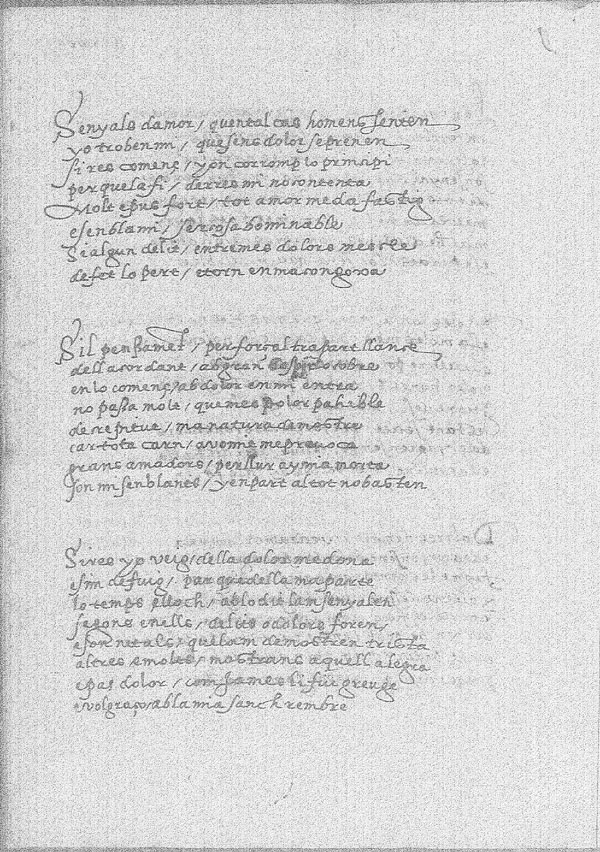 Senyals damor / quental cas homens senten
yo trob en mi / que sens dolor seprenen
si res comens / yon corromp lo prinsipi
per quela fi / darres mi no contenta
Molt epus fort / tot amor me da fastig
esenblam / ser cosa bominable
Si algun delit / entremes dolors mescle
defet lo pert / etorn en ma congoxa
Sil pensament / per forsa altra part llanse
dell acordant / ab gran despit sobre
en lo comens / ab dolor en mi entra
no passa molt / que mes dolor pahible
de repitue / ma natura demostre
car tota carn / avomit me provoca
grans amadors / per llur aymia morta
son mi senblants / y en part al tot no basten
Si res yo veig / della dolor me dona
esim defuig / par que della maparte
lo temps elloch / ab lo dit lam senyalen
segons enells / delits o dolors foren
eson ne tals / quellam demostren trista
altres emolts / mostrans aquella alegra
epas dolor / com james li fiu greuge
evolgra ab la mia sanch rembre